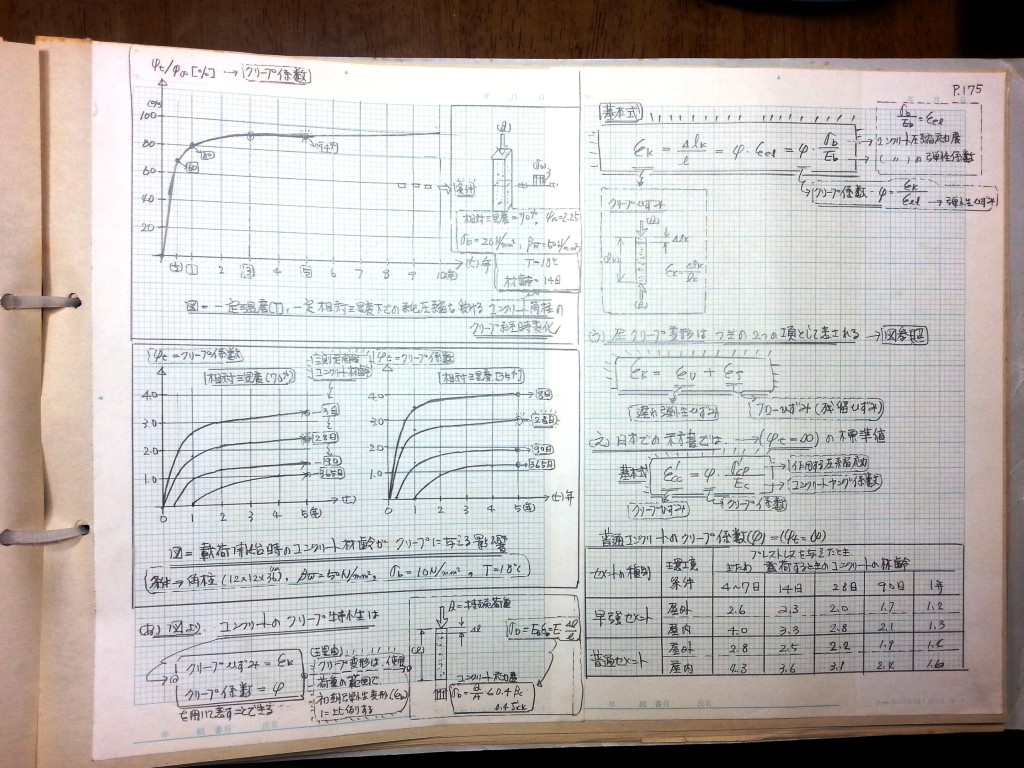 φt/φ∞ [%] → クリープ係数
(%)
100
80
60
40
20
(½) 1 2 3 4 5 6 7 8 9 10年 (t)年
60
80
条件
相対湿度=70%, φ∞=2.25
σb=20N/mm², βw=50N/mm²
T=18℃
材齢=14日
図=一定温度(T), 一定相対湿度下での軸圧縮を受けるコンクリート角柱の
クリープ経時変化
φt=クリープ係数
相対湿度(70%)
コンクリート材齢
4.0
3.0
2.0
1.0
3日
28日
90
365日
0 1 2 3 4 5(年) (t)
φt=クリープ係数
相対湿度(35%)
4.0
3.0
2.0
1.0
28日
90日
365日
0 1 2 3 4 5(年) (t)年
図=載荷開始時のコンクリート材齢がクリープに与える影響
条件→角柱(12×12×36cm), βw=50N/mm², σb=10N/mm², T=18℃
下図より, コンクリートのクリープ特性は
クリープひずみ=εk
クリープ係数=φ
を用いて表すことできる
(理由)
クリープ変形は, 使用
荷重の範囲で
初期弾性変形(εel)
に比例する
P=持続荷重
Δl
(l)
σb=Ebεb=E Δl/l
コンクリート応力度
P.175
基本式
εk = Δlk/l = φ・εel = φ・σb/Eb
σb/Eb=εel
コンクリート圧縮応力度
( 〃 )の弾性係数
クリープ係数 φ=εk/εel → 弾性ひずみ
クリープひずみ
Δlk
クリープ変形はつぎの2つの項として表される → 図参照
εk = εv + εf
遅れ弾性ひずみ
フローひずみ(残留ひずみ)
日本での示方書では, → (φt=∞)の標準値
基本式 ε'cc = φ・σ'cp/Ec
作用する圧縮応力
コンクリートヤング係数
クリープひずみ
クリープ係数
普通コンクリートのクリープ係数(φ)=(φt=∞)
セメントの種別 環境条件 プレストレスを与えたとき
または載荷するときのコンクリートの材齢
4~7日 14日 28日 90日 1年
早強セメント 屋外 2.6 2.3 2.0 1.7 1.2
屋内 4.0 3.3 2.8 2.1 1.3
普通セメント 屋外 2.8 2.5 2.2 1.9 1.4
屋内 4.3 3.6 3.1 2.4 1.6
年 組 番号 氏名